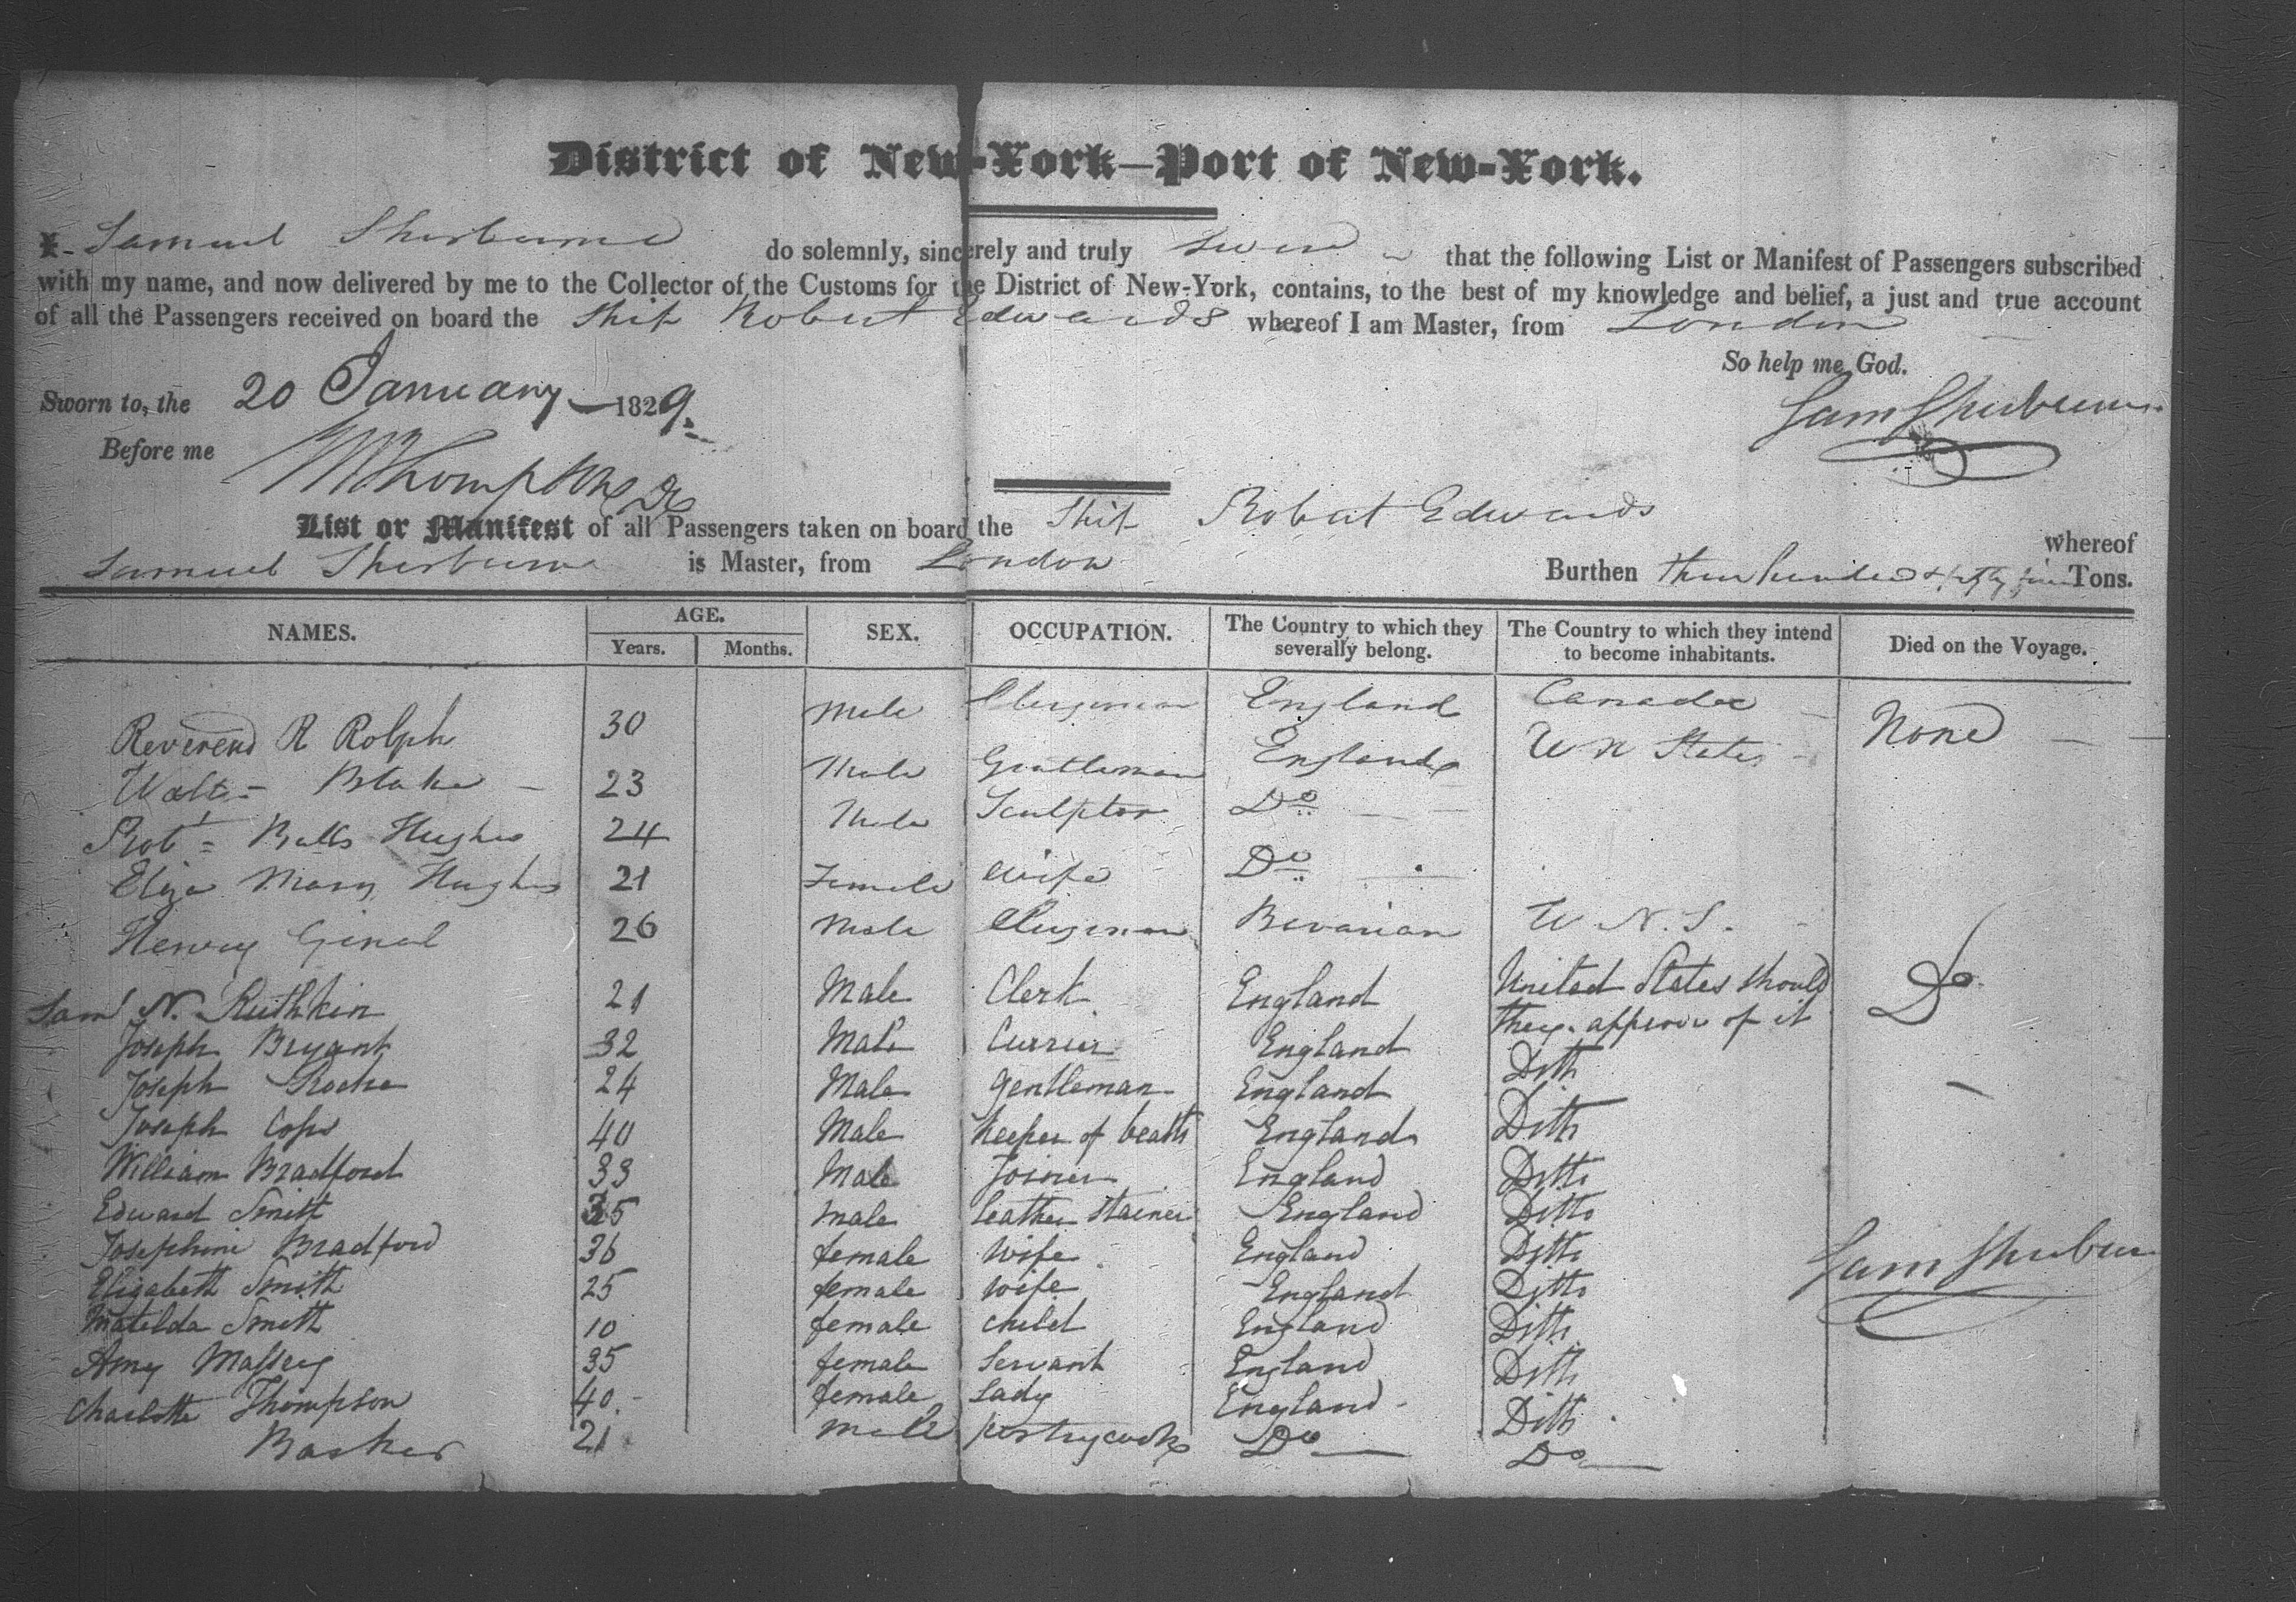 District of New-York—Port of New-York.
I- Samuel Sherburne do solemnly, sincerely and truly swear that the following List or Manifest of Passengers subscribed
with my name, and now delivered by me to the Collector of the Customs for the District of New-York, contains, to the best of my knowledge and belief, a just and true account
of all the Passengers received on board the Ship Robert Edwards whereof I am Master, from London
So help me God.
Sworn to, the 20 January 1829. Sam Sherburne
Before me Thompson
List or Manifest of all Passengers taken on board the Ship Robert Edwards whereof
Samuel Sherburne is Master, from London Burthen three hundred & fifty Tons.
NAMES. AGE. Years. Months. SEX. OCCUPATION. The Country to which they severally belong. The Country to which they intend to become inhabitants. Died on the Voyage.
Reverend R Rolph 30 Male Clergyman England Canada None
Walter Blake 23 Male Gentleman England Un States
Robt Balls Hughes 24 Male Sculptor Do
Eliza Mary Hughes 21 Female Wife Do
Henry Ginal 26 Male Clergyman Bavarian U N. S.
Saml N. Ruthkin 21 Male Clerk England United States should they approve of it Do
Joseph Bryant 32 Male Currier England Ditto
Joseph Roche 24 Male Gentleman England Ditto
Joseph Cops 40 Male Keeper of beasts England Ditto
William Bradford 33 Male Joiner England Ditto
Edward Smith 35 Male Leather Stainer England Ditto
Josephine Bradford 36 female Wife England Ditto
Elizabeth Smith 25 female Wife England Ditto Sam Sherburne
Matilda Smith 10 female Child England Ditto
Amy Massey 35 female Servant England Ditto
Charlotte Thompson 40 female Lady England Ditto
Barker 21 male pastrycook Do Do